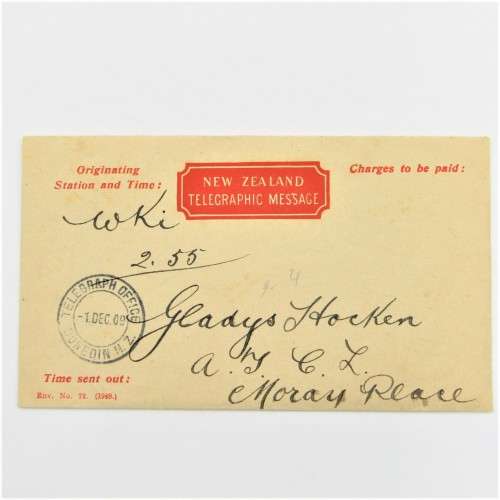 Originating
Station and Time:
NEW ZEALAND
TELEGRAPHIC MESSAGE
Charges to be paid:
WKi
2.55
TELEGRAPH OFFICE
-1 DEC 09
DUNEDIN N.Z.
Gladys Hocken
A. S. C. L.
Moray Place
Time sent out:
Env. No. 72. (1949.)